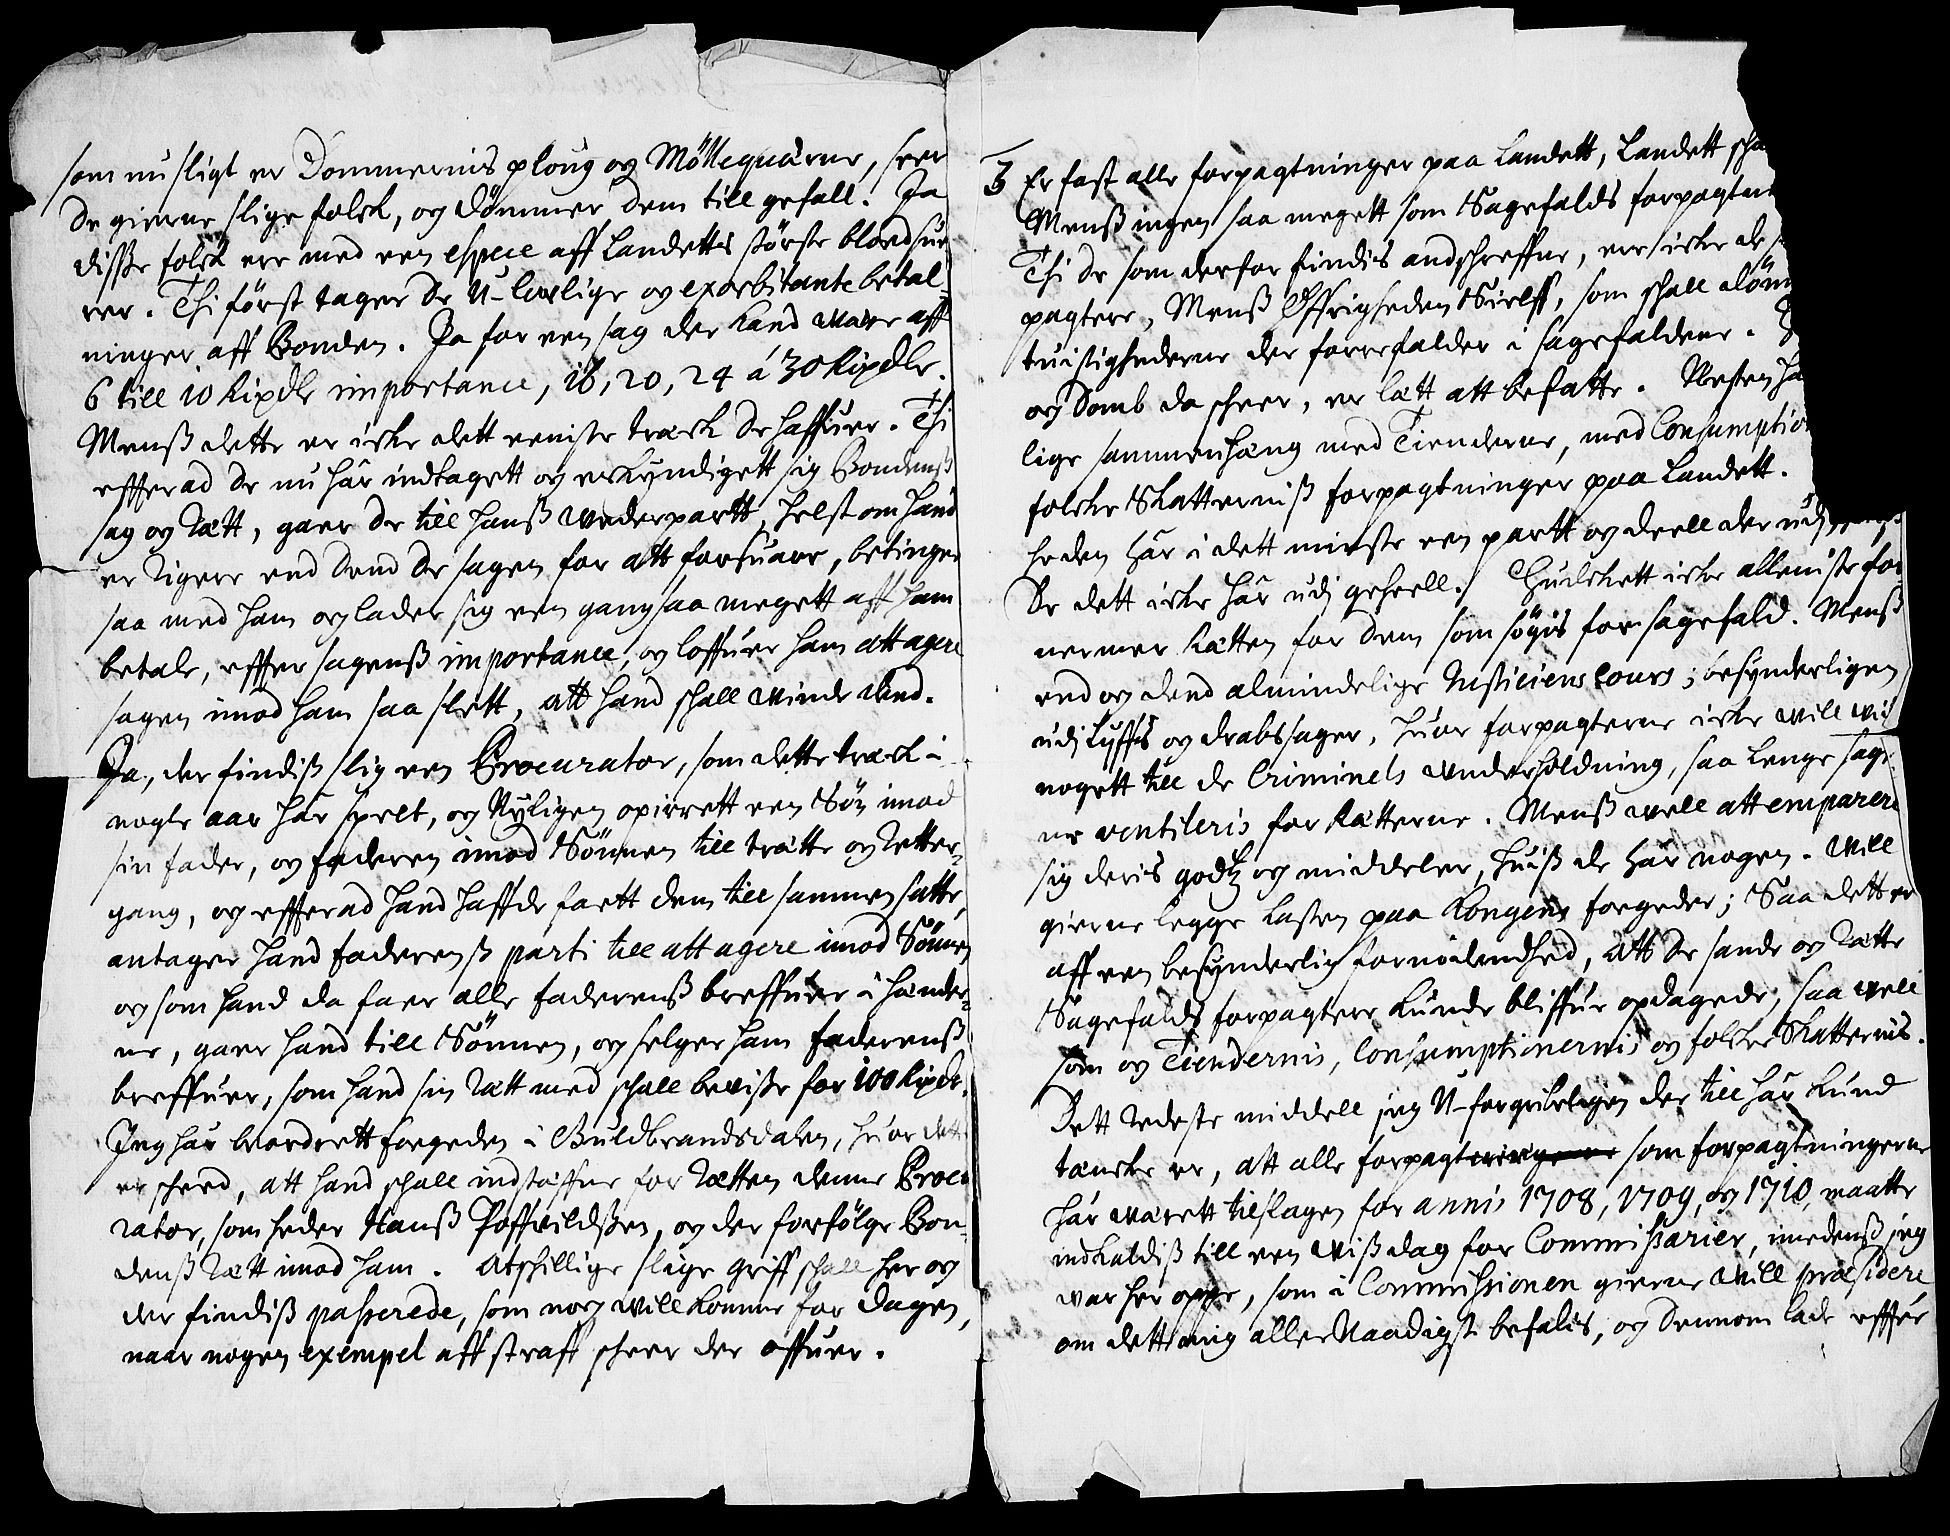 som nu sligt er Dommernis ploug og Möllequärne, seer
de gierne slige folck, og dömmer dem till gefall. Ja
disse folck ere med een espece aff Landetts störste blodsue
rer. Thi först tager de U-lovlige og exorbitante betal-
ninger aff Bonden. Ja for een sag der kand være aff
6 till 10 Rixdlr importance, 16, 20, 24 á 30 Rixdlr.
Menß dette er icke dett eeniste træck de haffuer. Thi
efferad de nu här indtagett og erkyndigett sig Bondenß
sag og Rætt, gaar de till hanß wederpartt, helst om hand
er Rigere end dend de sagen for att forsuare, betinger
saa med ham og lader sig een gang saa megett aff ham
betale, effter sagenß importance, og loffuer ham att agere
sagen imod ham saa slett, att hand schall winde dend.
Ja, der findiß slig een Procurator, som dette træck i
nogle aar här spelt, og Nyligen opirrett een Sön imod
sin fader, og faderen imod Sönnen till trætte og Retter-
gang, og efferad hand haffde faett dem till sammen satte,
antager hand faderenß parti till att agere imod Sönnen
og som hand da faer alle faderenß breffuer i hænder-
ne, gaar hand till Sönnen, og selger ham faderenß
breffuer, som hand sin Rætt med schall bevisse for 100 Rixdr.
Jeg här beordrett fogeden i Guldbrandsdalen, huor dett
er scheed, att hand schall indstæffne for Rætten denne Procu
rator, som heder Hanß Poffvildßen, og der forfölge Bon-
denß Rætt imod ham. Atschillige slige griff schall her og
der findiß passerede, som nog will komme for dagen,
naar nogen exempel aff straff scheer der offuer.
3 Er fast alle forpagtninger paa Landett, Landett scha
Menß ingen saa megett som Sagefalds forpagtni
Thi de som derfor findis andschreffne, ere icke de
pagtere, Menß Öffrigheden Sielff, som schall döm
tuistighederne der forrefalder i sagefaldene.
og Somb da scheer, er lætt att befatte. Næsten ha
lige sammenhæng med Tienderne, med Consumption
folcke Skatterniß forpagtninger paa Landett.
heden här i dett minste een partt og deell der udj
de dett icke här udj geheell. Huilckett icke alleniste for
nermer Rætten for dem som sögis for sagefald. Menß
end og dend almindelige Justiciens cours; besynderligen
udj tyffs og drabssager, huor forpagterne icke will
nogett till de Criminels underholdning, saa lenge sage
ne ventileris for Rætterne. Menß vell att emparere
sig deris godtz og middeler, huiß de här nogen. Will
gierne legge Lasten paa Kongens fogeder; Saa dett er
aff een besynderlig fornödendhed, att de sande og Rætte
Sagefalds forpagtere kunde bliffue opdagede, saa well
som og Tiendernis, Consumptionernis og folcke Skatternis.
Dett Redeste middell jeg U-forgribeligen der till här kund
tæncke er, att alle forpagt som forpagtningerne
här wärett tilslagen for annis 1708, 1709, og 1710, maatte
indkaldiß till een wiß dag for Commissarier, imedenß jeg
war her oppe, som i Commissionen gierne will præsidere
om dett mig aller Naadigst befalis, og dennom lade effter